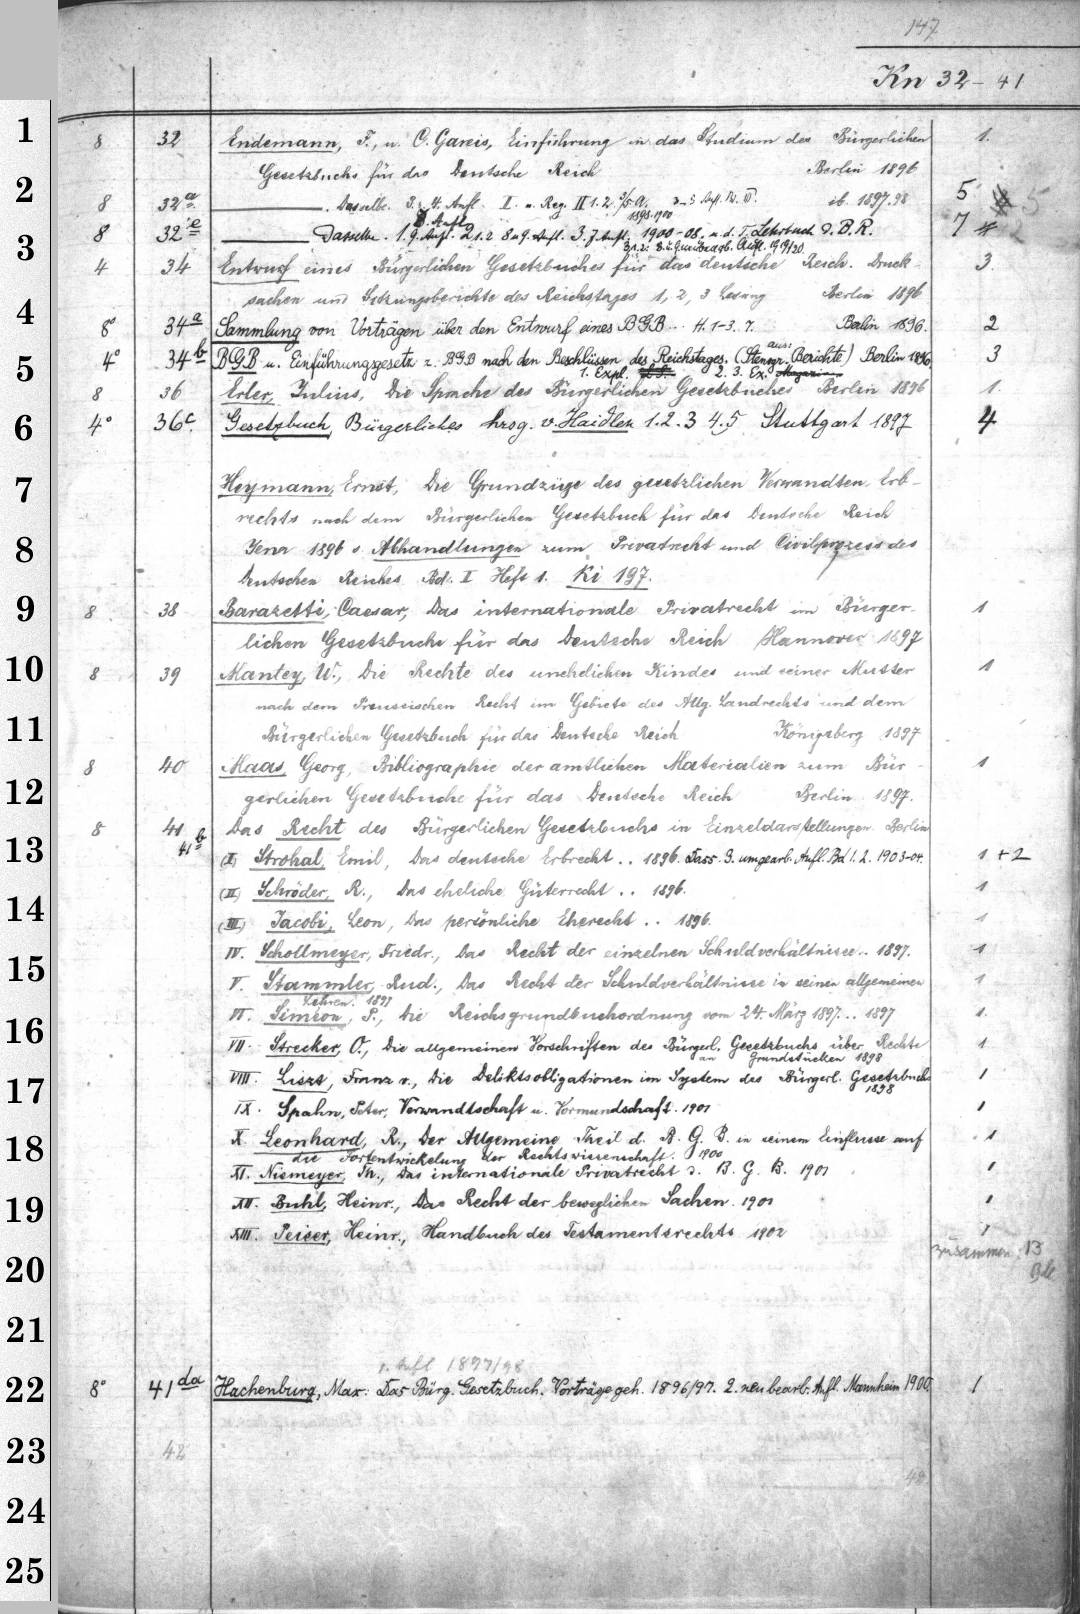 147
Kn 32-41
1
8 32 Endemann, F., u. C. Gareis, Einführung in das Studium des Bürgerlichen 1.
Gesetzbuchs für das Deutsche Reich Berlin 1896
2
8 32a ——— . Dasselbe. 3. 4. Aufl. I. u. Reg. II 1. 2. ib. 1897.98 5 5
1898.1900
8. Aufl.
3
8 32e ——— Dasselbe. 1. 9. Aufl. 2,1.2 8 u 9. Aufl. 3. 7. Aufl. 1900-08. u. d. T. Lehrbuch d. B. R. 7
4 34 Entwurf eines Bürgerlichen Gesetzbuches für das deutsche Reich. Druck- 3
sachen und Sitzungsberichte des Reichstages 1, 2, 3 Lesung Berlin 1896
4
8° 34a Sammlung von Vorträgen über den Entwurf eines BGB... H. 1-3. 7. Berlin 1896. 2
aus:
5
4° 34b BGB u. Einführungsgesetz z. BGB nach den Beschlüssen des Reichstages. (Stenogr. Berichte) Berlin 1896 3
1. Expl. 2. 3. Ex. Magazin
8 36 Erler, Julius, Die Sprache des Bürgerlichen Gesetzbuches Berlin 1896 1.
6
4° 36c. Gesetzbuch, Bürgerliches hrsg. v. Haidlen 1. 2. 3 4. 5 Stuttgart 1897 4
7
Heymann, Ernst, Die Grundzüge des gesetzlichen Verwandten Erb-
rechts nach dem Bürgerlichen Gesetzbuch für das Deutsche Reich
8
Jena 1896 s. Abhandlungen zum Privatrecht und Civilprozess des
Deutschen Reiches Bd. I Heft 1. Ki 197.
9
8 38 Barazetti, Caesar, Das internationale Privatrecht im Bürger- 1
lichen Gesetzbuche für das Deutsche Reich Hannover 1897
10
8 39 Mantey, W., Die Rechte des unehelichen Kindes und seiner Mutter 1
nach dem Preussischen Recht im Gebiete des Allg. Landrechts und dem
11
Bürgerlichen Gesetzbuch für das Deutsche Reich Königsberg 1897
8 40 Maas, Georg, Bibliographie der amtlichen Materialien zum Bür- 1
12
gerlichen Gesetzbuche für das Deutsche Reich Berlin 1897.
8 41 Das Recht des Bürgerlichen Gesetzbuchs in Einzeldarstellungen. Berlin
13
41b (I) Strohal, Emil, Das deutsche Erbrecht .. 1896. Dass. 3. umgearb. Aufl. Bd 1. 2. 1903-04. 1 + 2
(II) Schröder, R., Das eheliche Güterrecht .. 1896. 1
14
(III) Jacobi, Leon, Das persönliche Eherecht .. 1896. 1
IV. Schollmeyer, Friedr., Das Recht der einzelnen Schuldverhältnisse .. 1897. 1
15
V. Stammler, Rud., Das Recht der Schuldverhältnisse in seinen allgemeinen 1
Lehren. 1897
VI. Simeon, P., Die Reichsgrundbuchordnung vom 24. März 1897... 1897 1.
16
VII. Strecker, O., Die allgemeinen Vorschriften des Bürgerl. Gesetzbuchs über Rechte 1
an Grundstücken 1898
17
VIII. Liszt, Franz v., Die Deliktsobligationen im System des Bürgerl. Gesetzbuchs 1
1898
IX. Spahn, Peter, Verwandtschaft u. Vormundschaft. 1901 1
18
X Leonhard, R., Der Allgemeine Theil d. B. G. B. in seinem Einflusse auf 1
die Fortentwickelung der Rechtswissenschaft. 1900
XI. Niemeyer, Th., Das internationale Privatrecht d. B. G. B. 1901 1
19
XII. Buhl, Heinr., Das Recht der beweglichen Sachen. 1901 1
XIII. Peiser, Heinr., Handbuch des Testamentsrechts 1902 1
zusammen: 13
Bde
20
21
1. Aufl 1897/98
22
8° 41da Hachenburg, Max: Das Bürg. Gesetzbuch. Vorträge geh. 1896/97. 2. neu bearb. Aufl. Mannheim 1900. 1
23
42
48
24
25